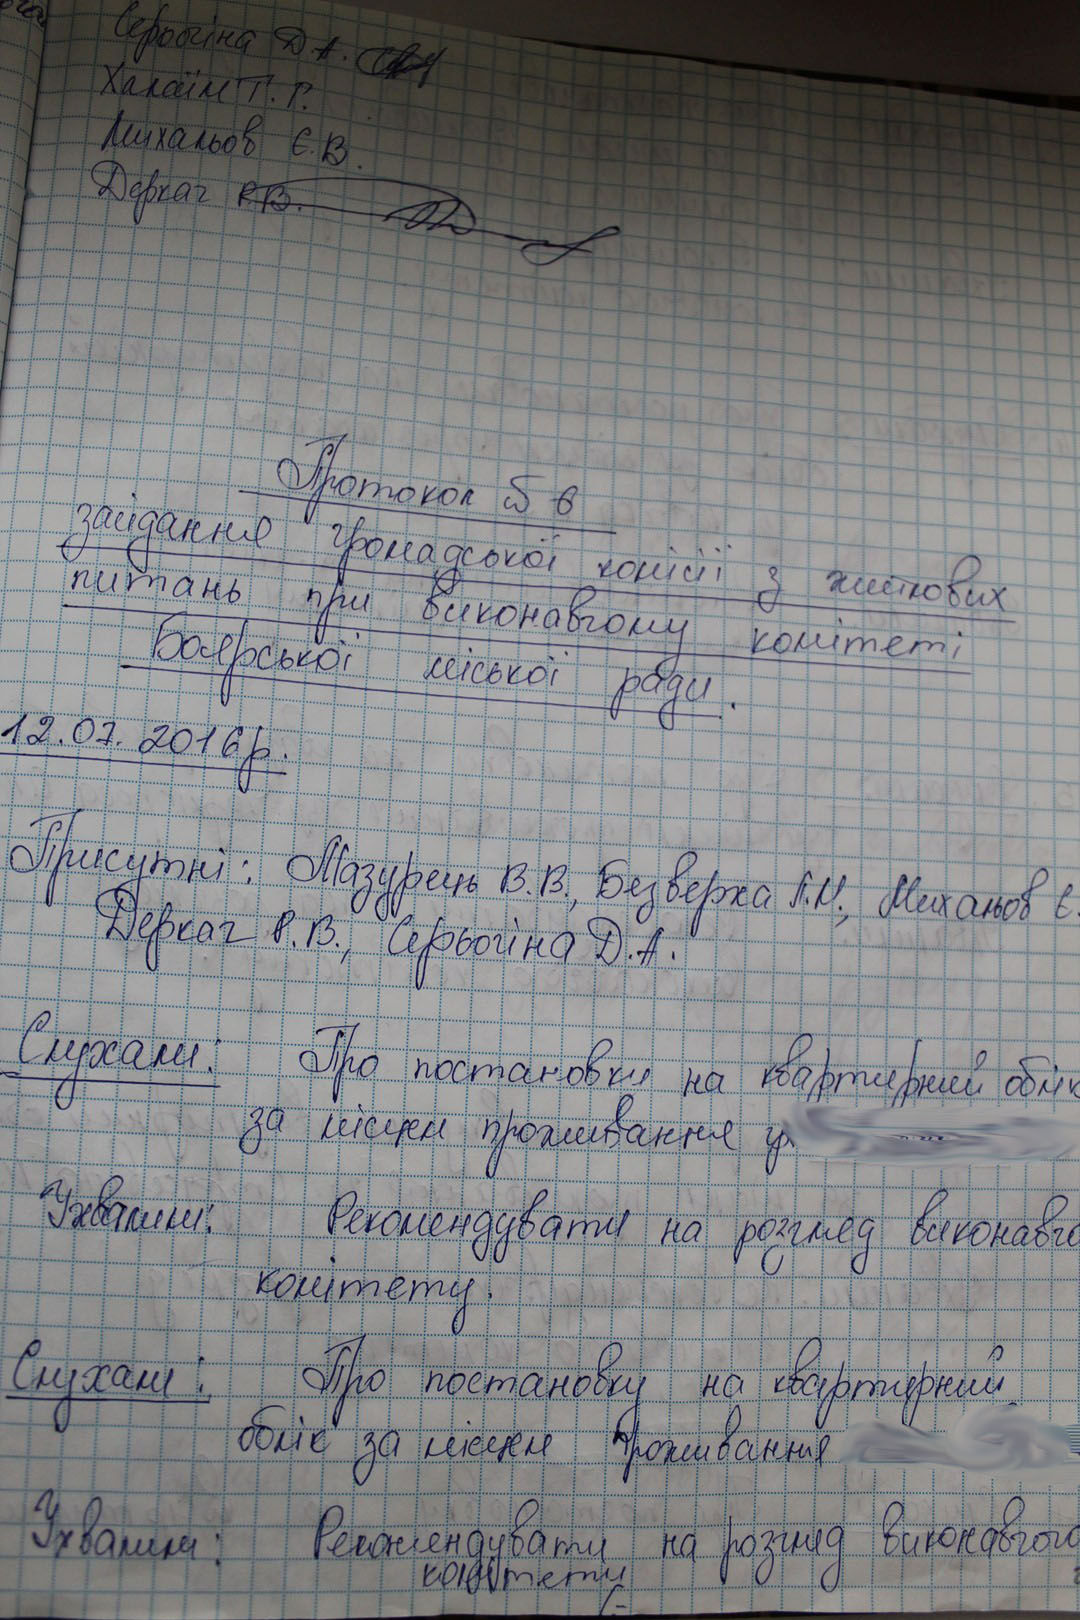 Серьогіна Д.А.
Халаїм Т.Г.
Михальов Є.В.
Деркач Р.В.
Протокол № 6
засідання громадської комісії з житлових
питань при виконавчому комітеті
Боярської міської ради.
12.07.2016р.
Присутні: Мазурець В.В., Безверха Л.М., Михальов Є.
Деркач Р.В., Серьогіна Д.А.
Слухали: Про постановку на квартирний облік
за місцем проживання
Ухвалили: Рекомендувати на розгляд виконавчо
комітету.
Слухали: Про постановку на квартирний
облік за місцем проживання
Ухвалили: Рекомендувати на розгляд виконавчого
комітету